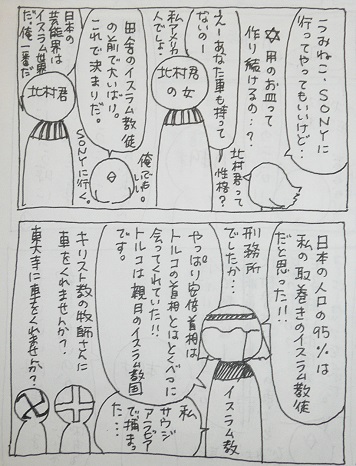 うみねこ、SONYに
行ってやってもいいけど…
✡用のお皿って
作り続けるの…？
北村君って
性格？
えーあなた車も持って
ないのー
私アメリカ
人でしょ
北村君
の女
田舎のイスラム教徒
の前で大いばり。
これで決まりだ。
俺でもいい
SONYに行く。
日本の
芸能界は
イスラム世界
だ。俺一番だ
北村君
日本の人口の95%は
私の取巻きのイスラム教徒
だと思った!!
刑務所
でしたか…
やっぱり安倍首相は
トルコの首相とはとくべつに
会ってくれていた!!
トルコは親日のイスラム教国
です。
イスラム教
私
サウジ
アラビア
で捕まっ
た…
キリスト教の牧師さんに
車をくれませんか？
東大寺に車をくれませんか？